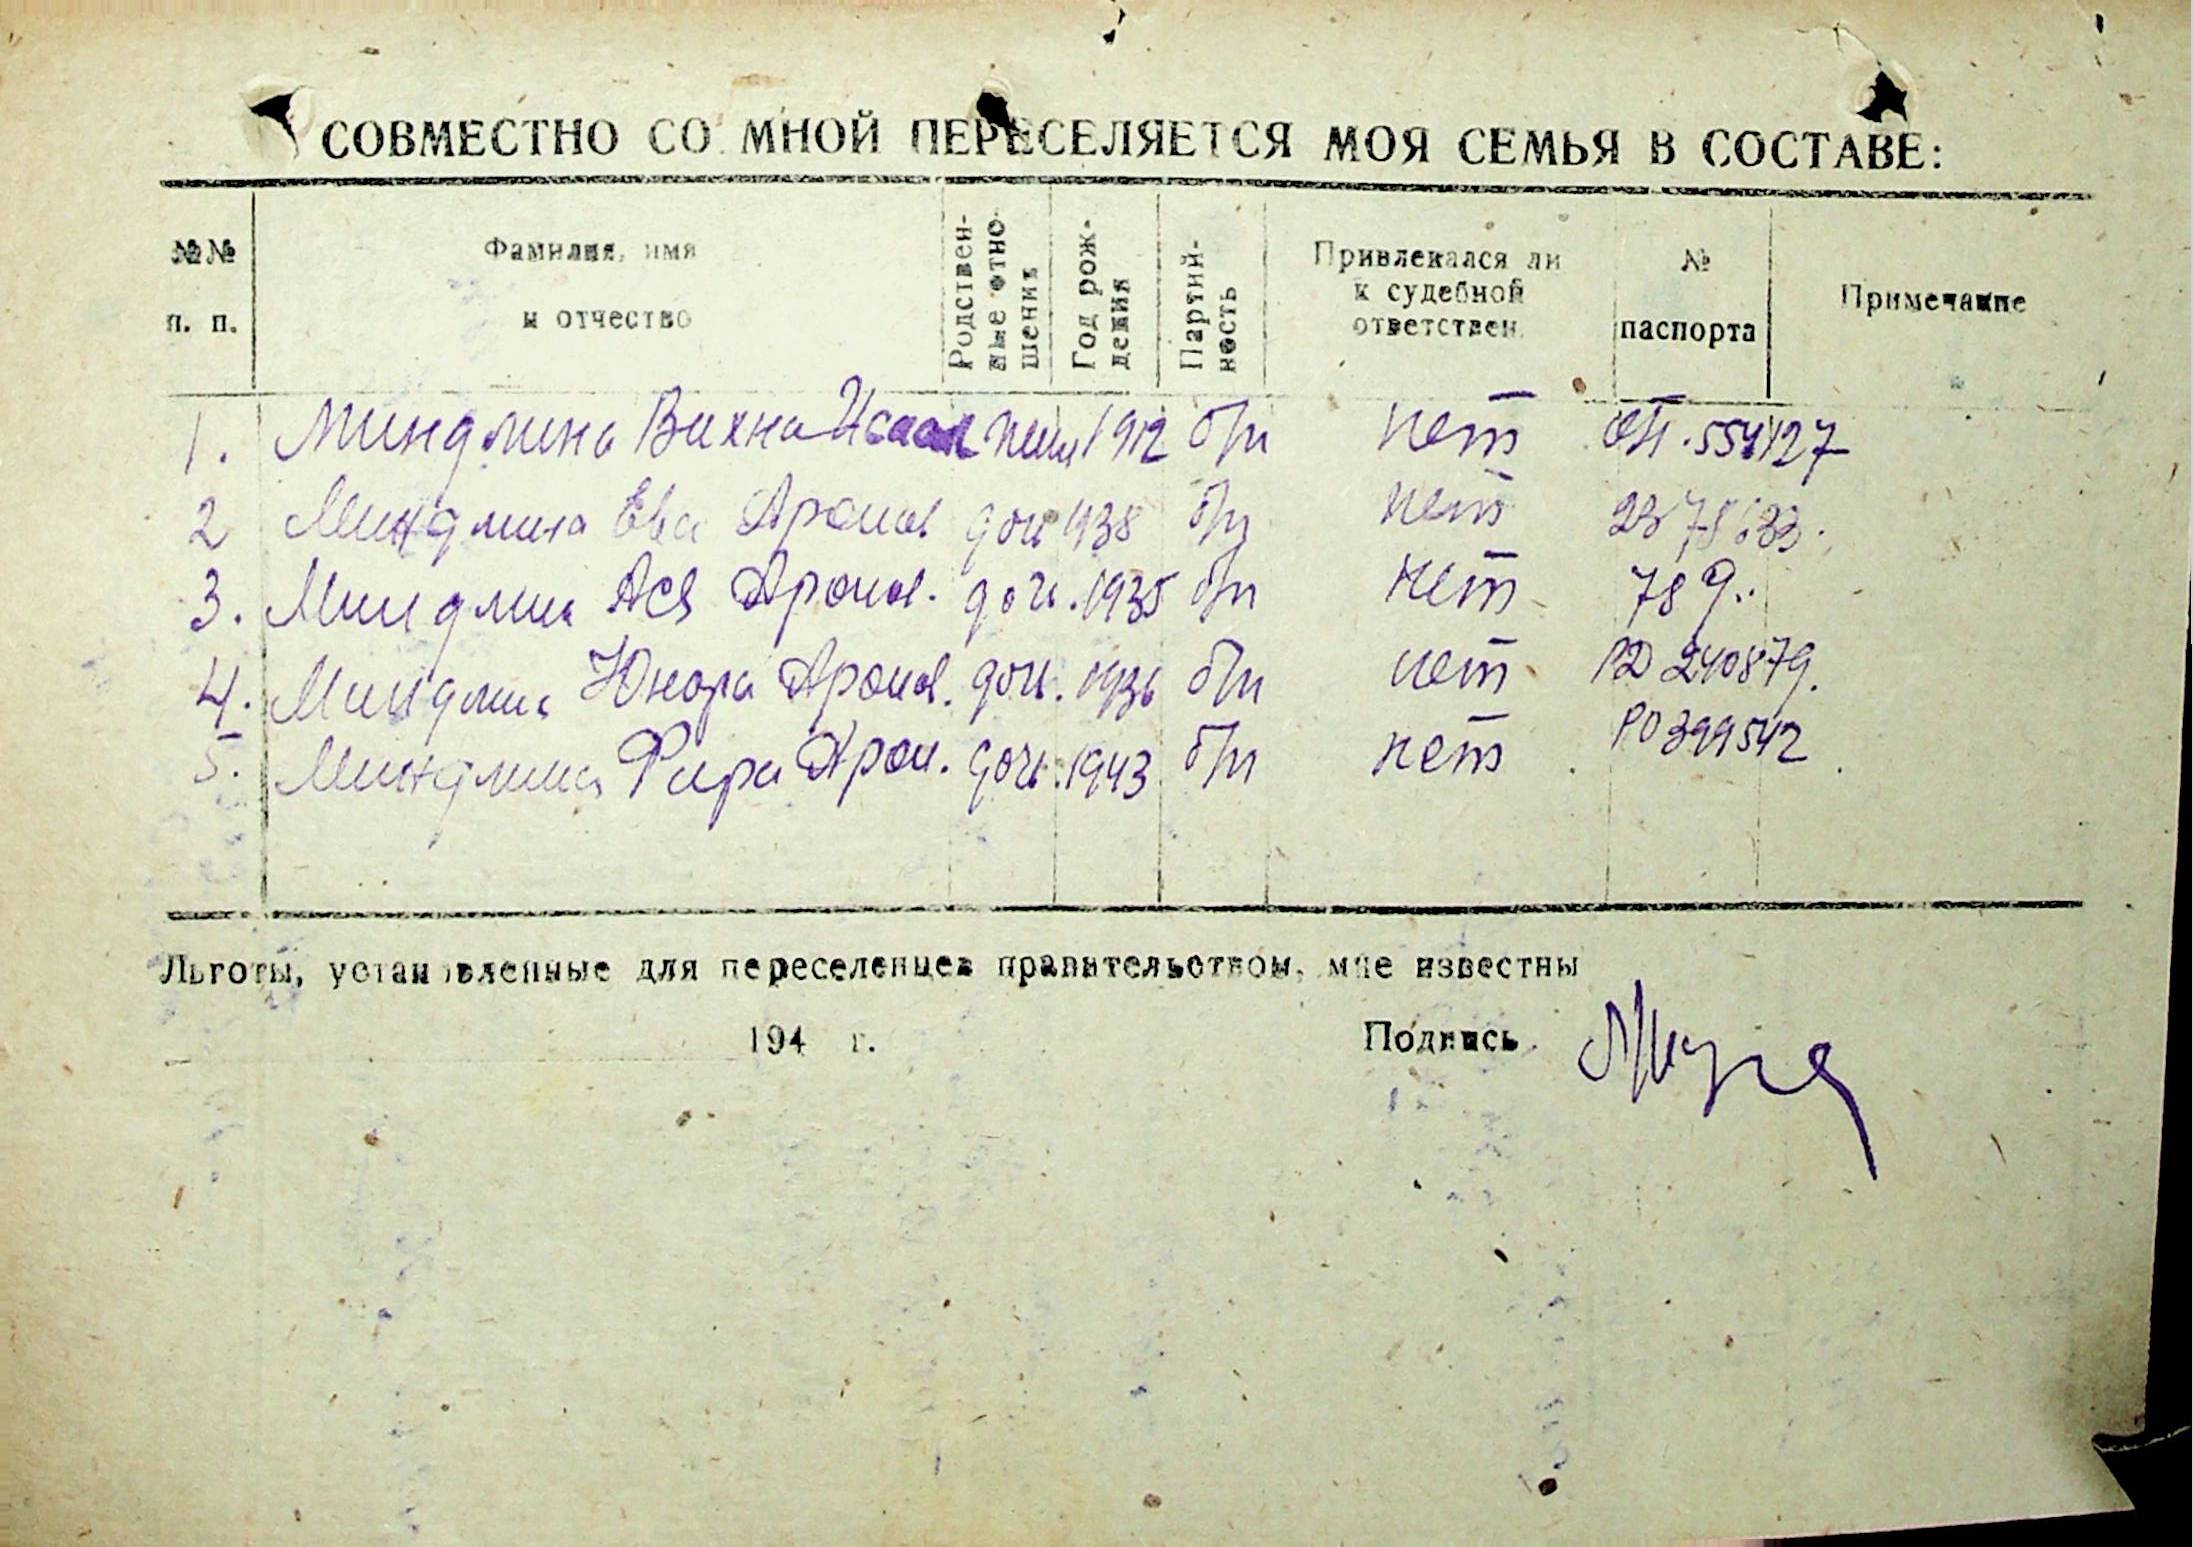 СОВМЕСТНО СО МНОЙ ПЕРЕСЕЛЯЕТСЯ МОЯ СЕМЬЯ В СОСТАВЕ:
№№ п. п. Фамилия, имя и отчество Родствен- ные отно- шения Год рож- дения Партий- ность Привлекался ли к судебной ответствен. № паспорта Примечание
1. Миндлина Вихна Исаак жена 1912 б/п нет 554127
2 Миндлина Ева Аронов доч 1938 б/п нет
3. Миндлина Ася Аронов. доч. 1935 б/п нет 789.
4. Миндлина Юнора Аронов. доч. 1936 б/п нет 240879.
5. Миндлина Фира Арон. доч. 1943 б/п нет РО 399542
Льготы, установленные для переселенцев правительством, мне известны
194 г. Подпись